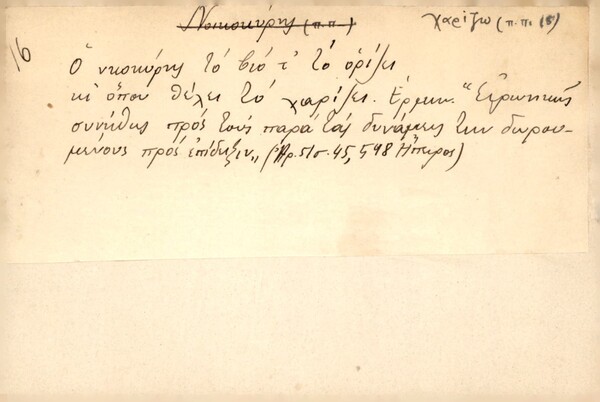 Νοικοκύρης (π.π.)
χαρίζω (π.π. 15)
16
Ὁ νκοκύρης τὸ βιό τ' τὸ ὁρίζει
κι ὅπου θέλει τὸ χαρίζει. Ἑρμην. "Εἰρωνικῶς
συνήθως πρὸς τοὺς παρὰ τὰς δυνάμεις των δωρου-
μένους πρὸς ἐπίδειξιν„ (Ἀρ. 51 σ. 45, 598 Ἤπειρος)